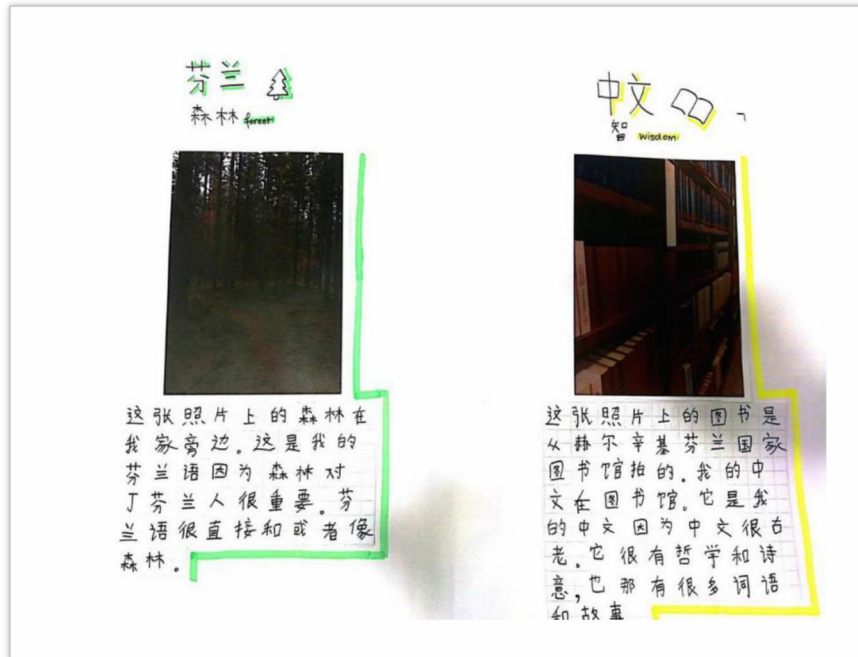 芬兰
森林 forest
这张照片上的森林在
我家旁边。这是我的
芬兰语因为森林对
丁芬兰人很重要。芬
兰语很直接和或者像
森林。
中文
智 wisdom
这张照片上的图书是
从赫尔辛基芬兰国家
图书馆拍的。我的中
文在图书馆。它是我
的中文因为中文很古
老。它很有哲学和诗
意,也那有很多词语
和故事